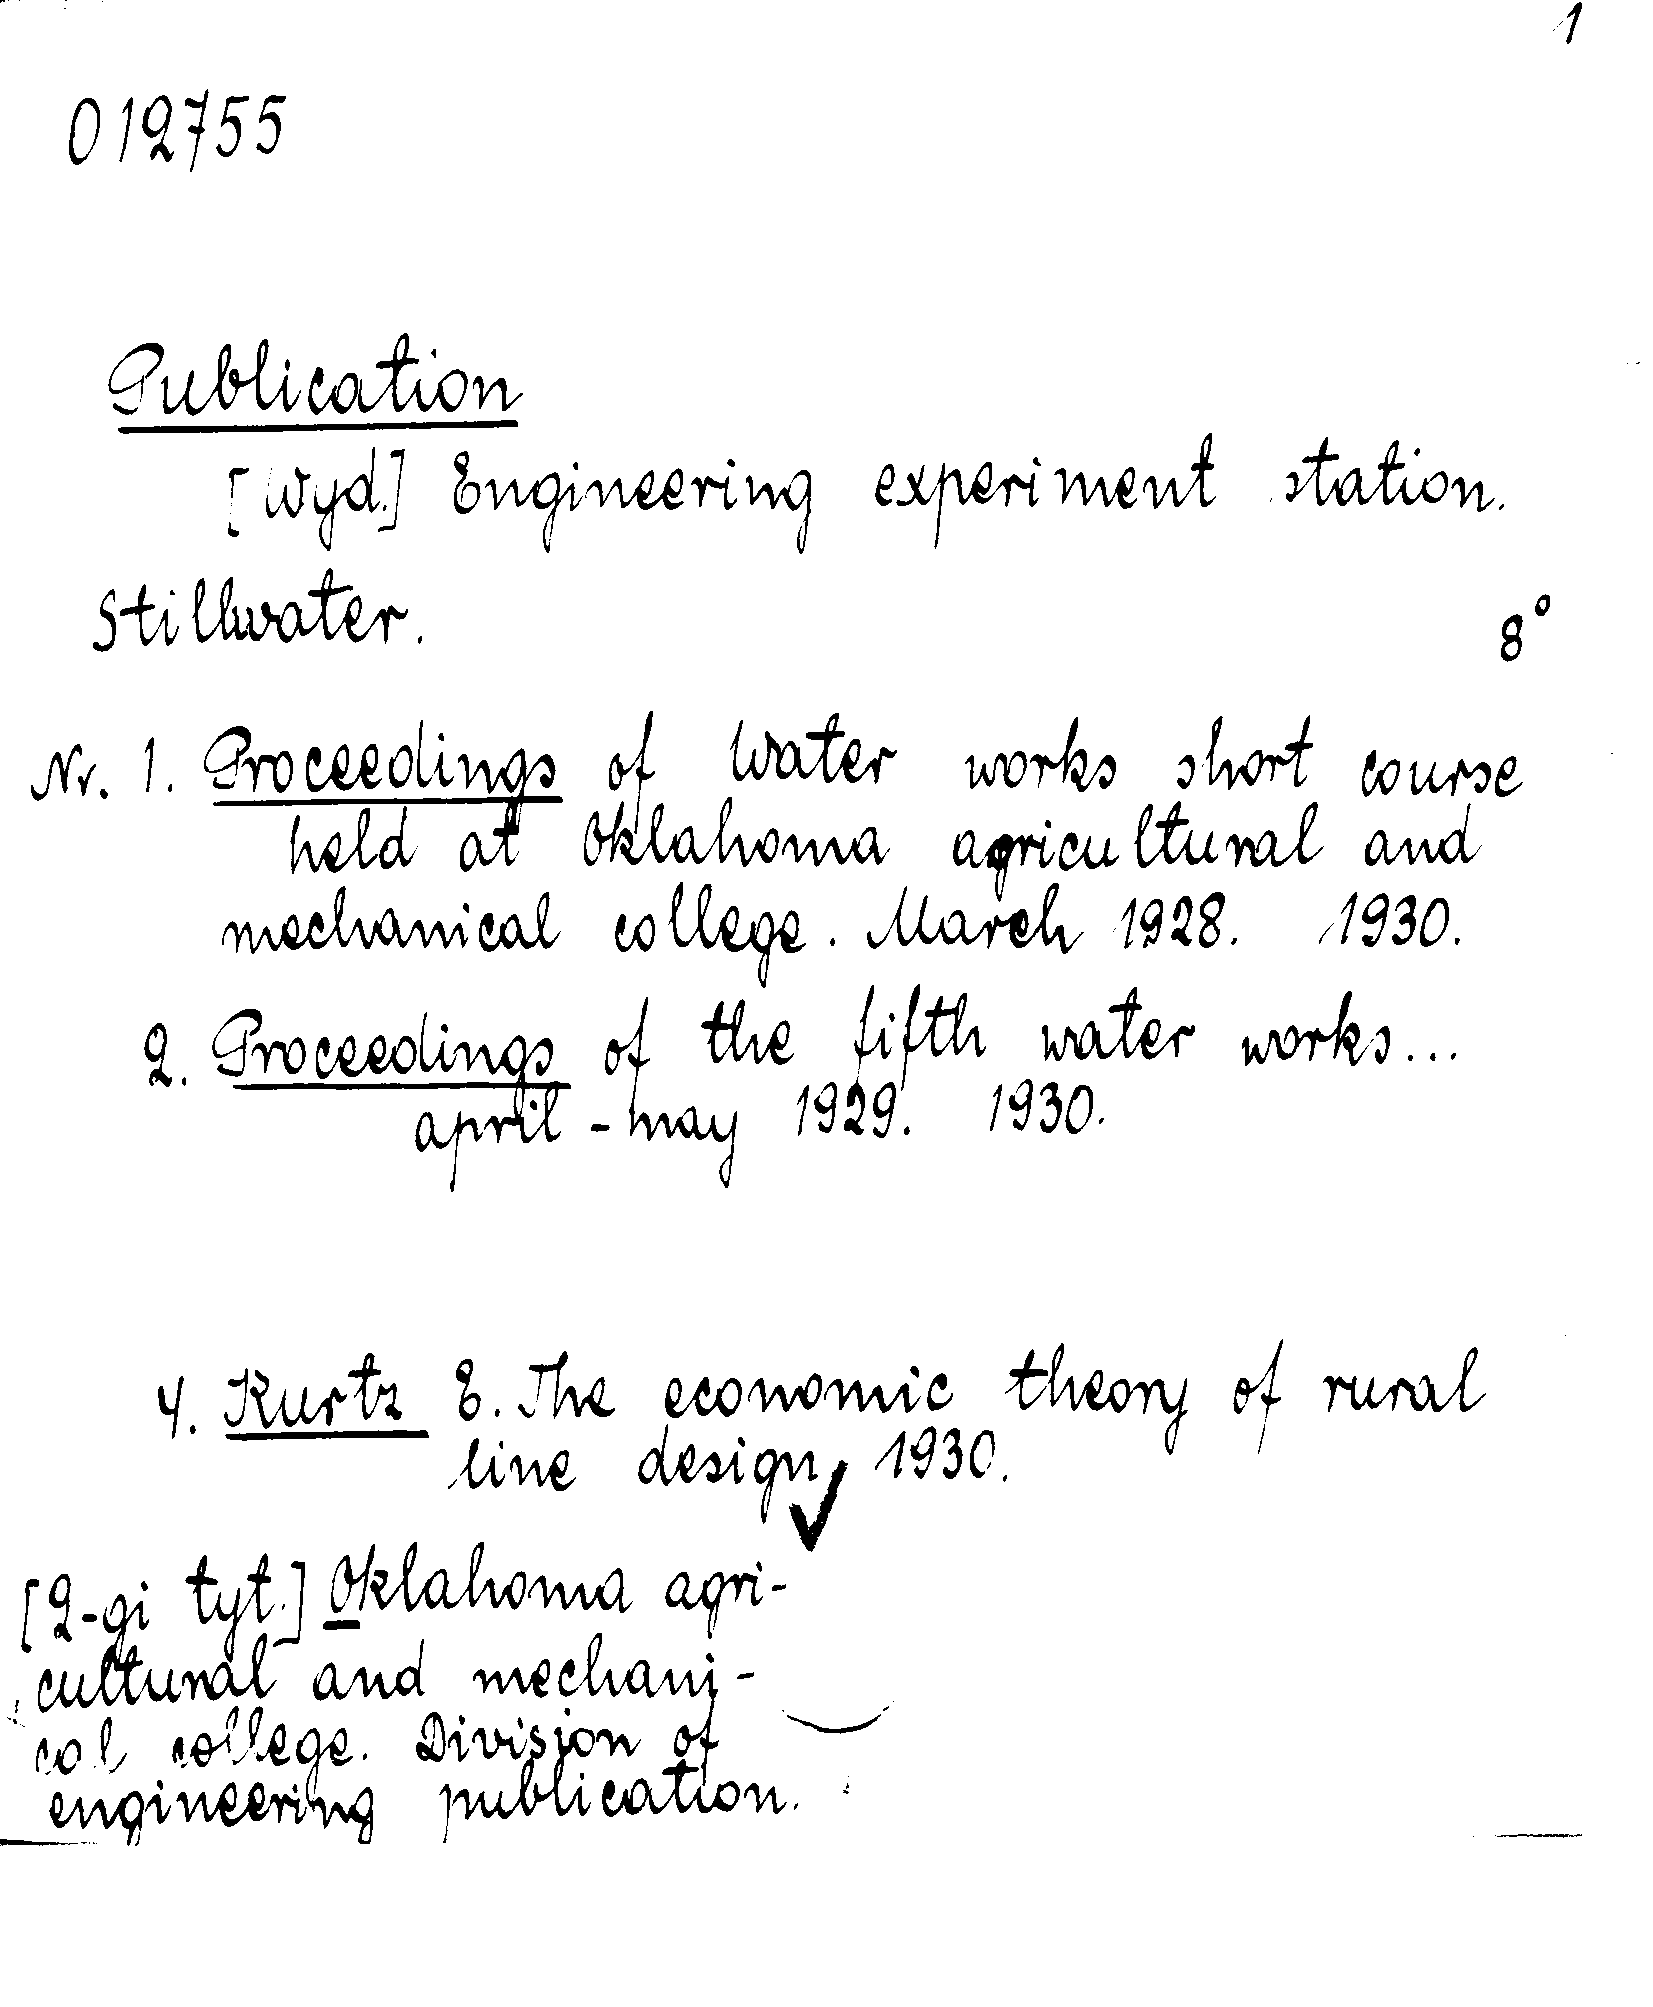 1
012755
Publication
[Wyd.] Engineering experiment station.
Stillwater. 8°
Nr. 1. Proceedings of Water works short course
held at Oklahoma agricultural and
mechanical college. March 1928. 1930.
2. Proceedings of the fifth water works...
april - may 1929. 1930.
4. Kurtz E. The economic theory of rural
line design, 1930.
[2-gi tyt.] Oklahoma agri-
cultural and mechani-
cal college. Division of
engineering publication.